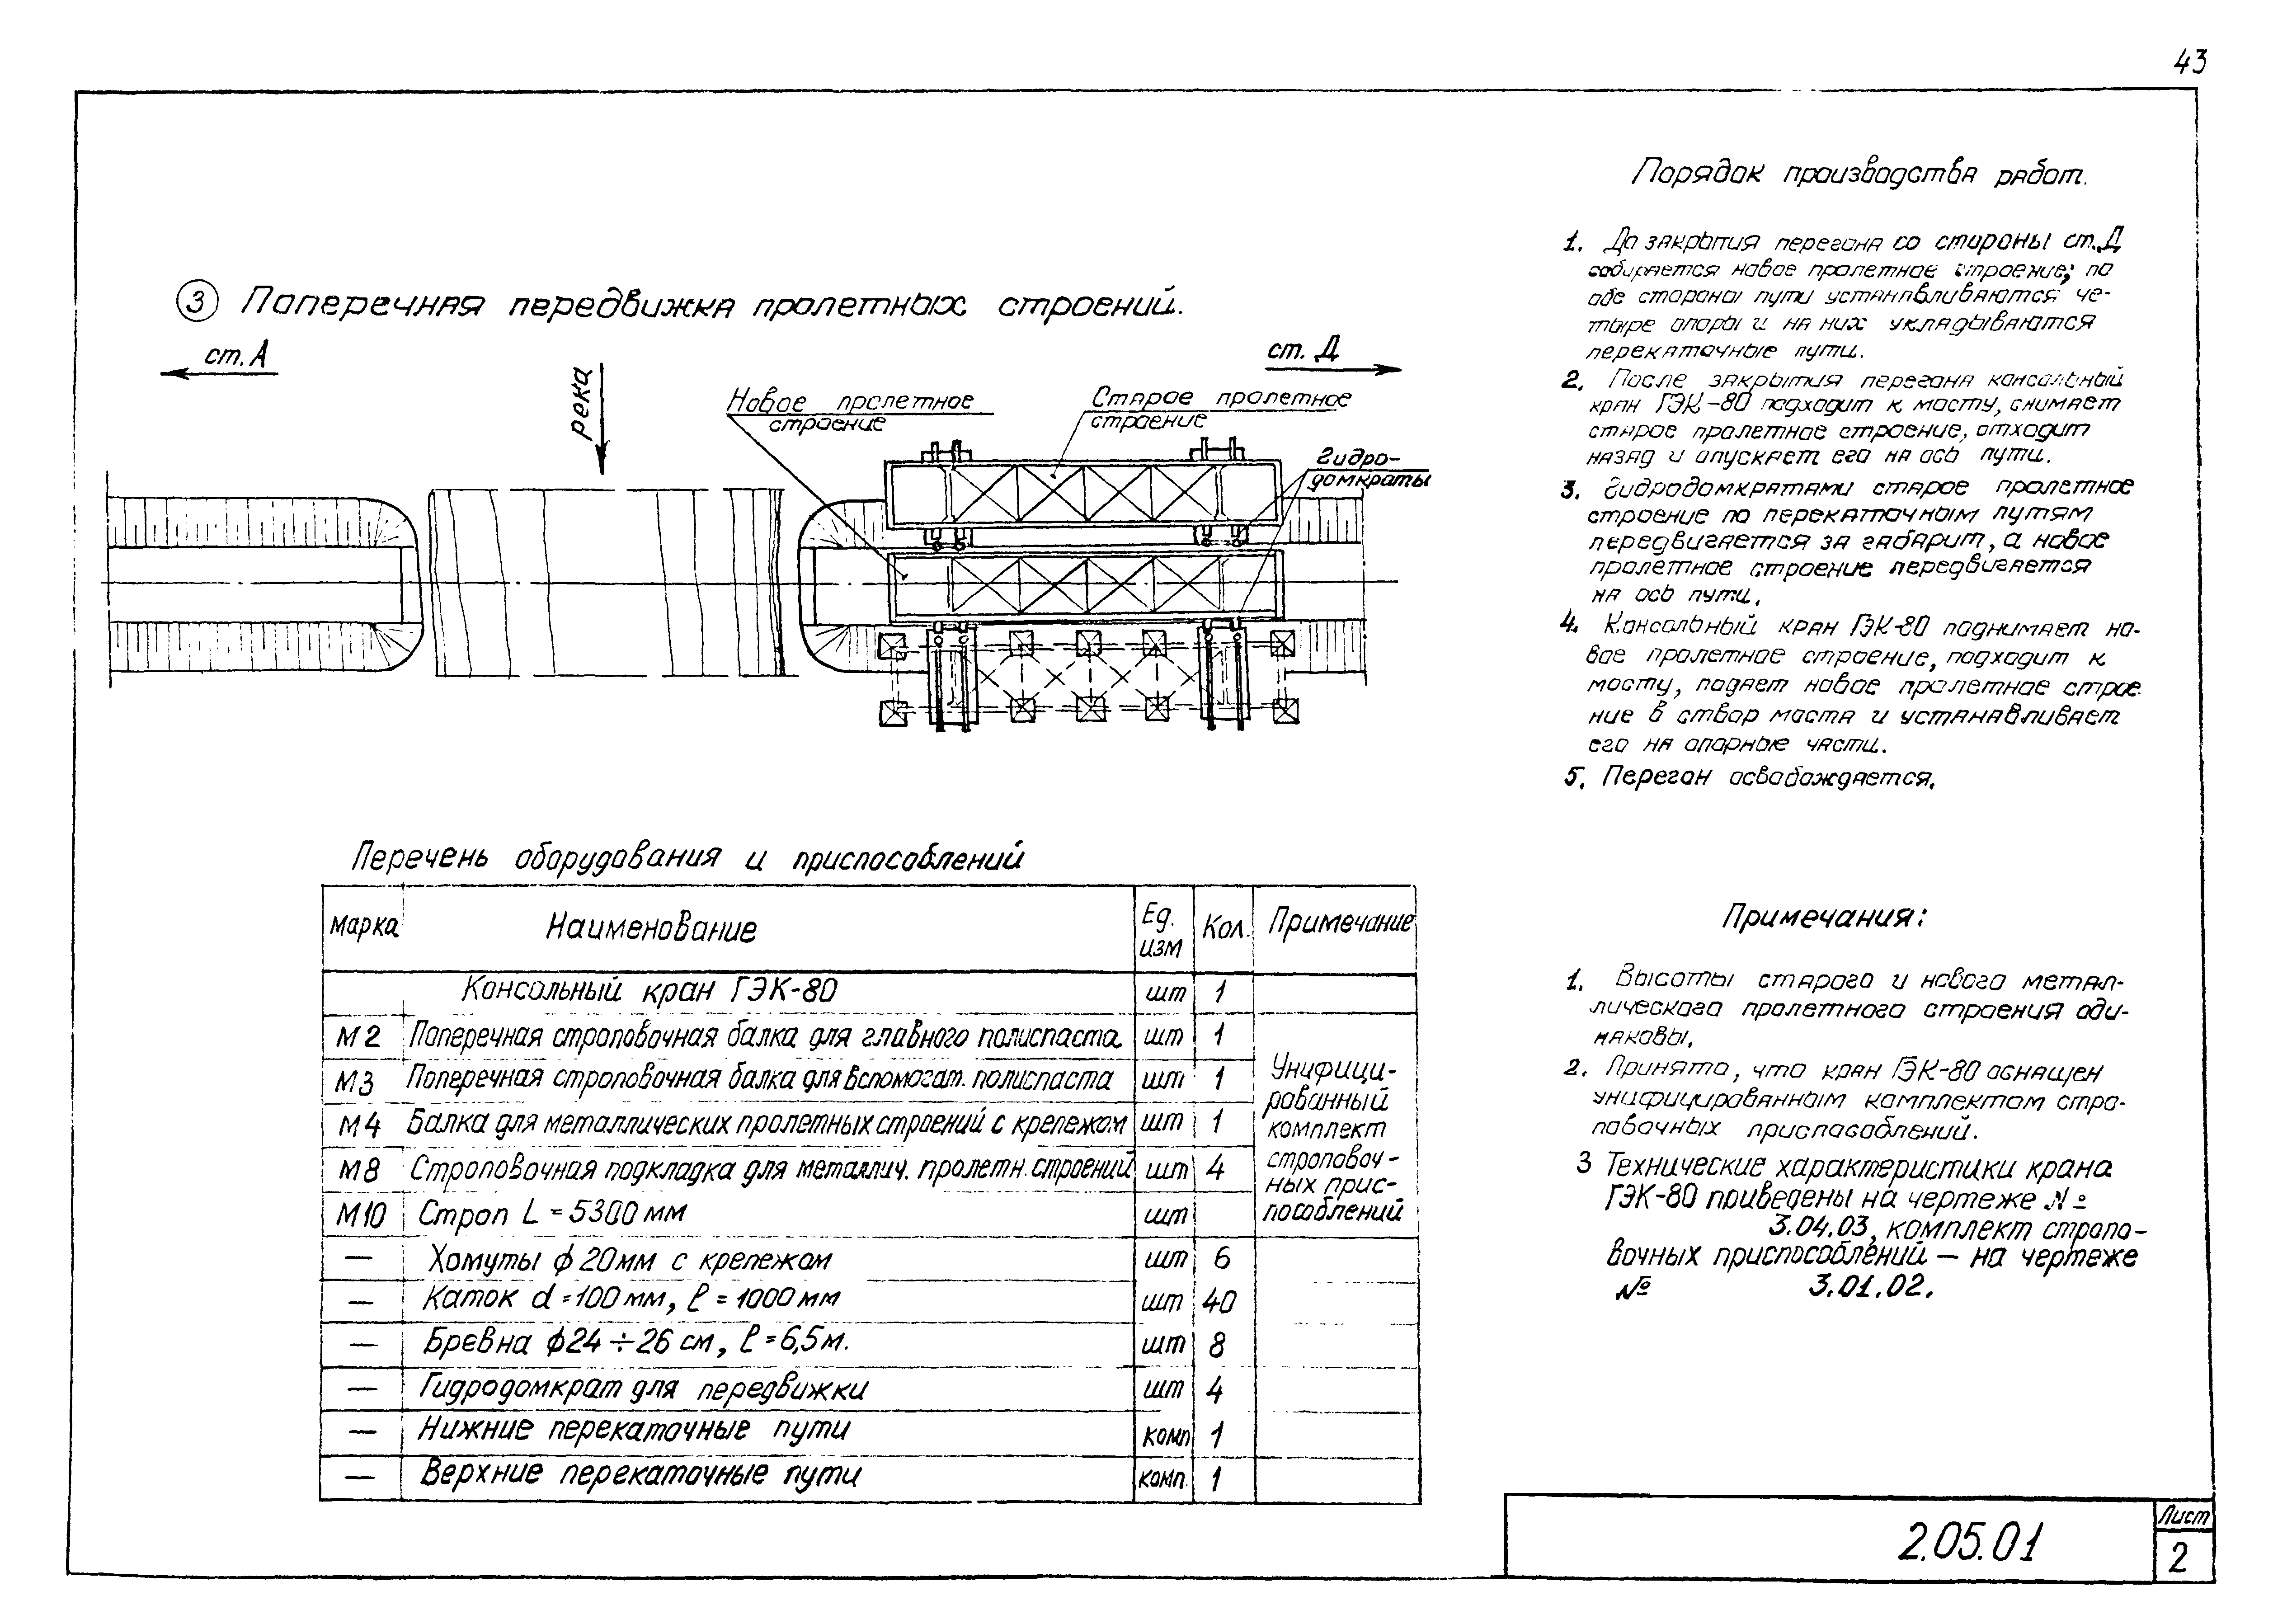 43
③ Поперечная передвижка пролетных строений.
ст. А
река
ст. Д
Новое пролетное
строение
Старое пролетное
строение
Гидро-
домкраты
Порядок производства работ.
1. До закрытия перегона со стороны ст. Д
собирается новое пролетное строение; по
обе стороны пути устанавливаются че-
тыре опоры и на них укладываются
перекаточные пути.
2. После закрытия перегона консольный
кран ГЭК-80 подходит к мосту, снимает
старое пролетное строение, отходит
назад и опускает его на ось пути.
3. Гидродомкратами старое пролетное
строение по перекаточным путям
передвигается за габарит, а новое
пролетное строение передвигается
на ось пути.
4. Консольный кран ГЭК-80 поднимает но-
вое пролетное строение, подходит к
мосту, подает новое пролетное строе
ние в створ моста и устанавливает
его на опорные части.
5. Перегон освобождается.
Перечень оборудования и приспособлений
Марка Наименование Ед. изм Кол. Примечание
Консольный кран ГЭК-80 шт 1
М2 Поперечная строповочная балка для главного полиспаста шт 1
М3 Поперечная строповочная балка для вспомогат. полиспаста шт 1
М4 Балка для металлических пролетных строений с крепежом шт 1
М8 Строповочная подкладка для металлич. пролетн. строений шт 4
М10 Строп L = 5300 мм шт
Унифици-
рованный
комплект
строповоч-
ных прис-
пособлений
— Хомуты ϕ 20мм с крепежом шт 6
— Каток d = 100 мм, ℓ = 1000 мм шт 40
— Бревна ϕ24 ÷ 26 см, ℓ = 6,5 м. шт 8
— Гидродомкрат для передвижки шт 4
— Нижние перекаточные пути комп 1
— Верхние перекаточные пути комп. 1
Примечания:
1. Высоты старого и нового метал-
лического пролетного строения оди-
наковы.
2. Принято, что кран ГЭК-80 оснащен
унифицированным комплектом стро-
повочных приспособлений.
3 Технические характеристики крана
ГЭК-80 приведены на чертеже №
3.04.03, комплект стропо-
вочных приспособлений — на чертеже
№ 3.01.02.
2.05.01
Лист
2